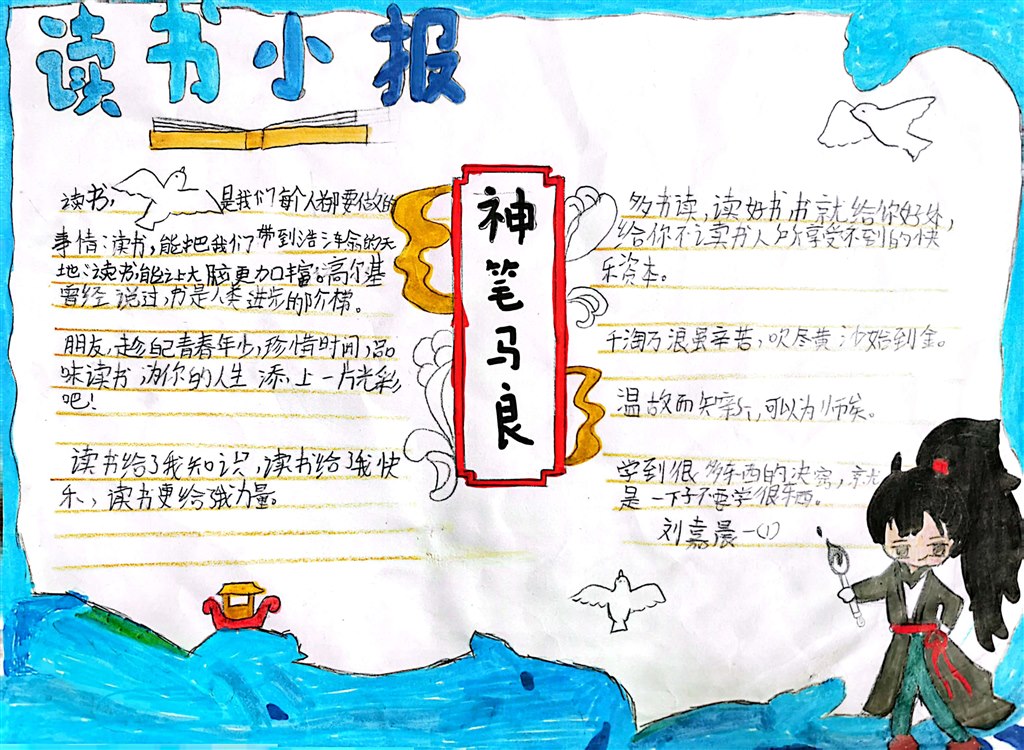 读书小报
神笔马良
读书,是我们每个人都要做的
事情:读书,能把我们带到浩渺的天
地:读书能让大脑更加丰富。高尔基
曾经说过,书是人类进步的阶梯。
朋友,趁自己青春年少,珍惜时间,品
味读书,为你的人生添上一片光彩
吧!
读书给了我知识,读书给了我快
乐,读书更给我力量。
多书读,读好书书就给你好处,
给你不读书人所享受不到的快
乐资本。
千淘万浪虽辛苦,吹尽黄沙始到金。
温故而知新,可以为师矣。
学到很多东西的决窍,就
是一下子不要学很东西。
刘嘉晨一(1)